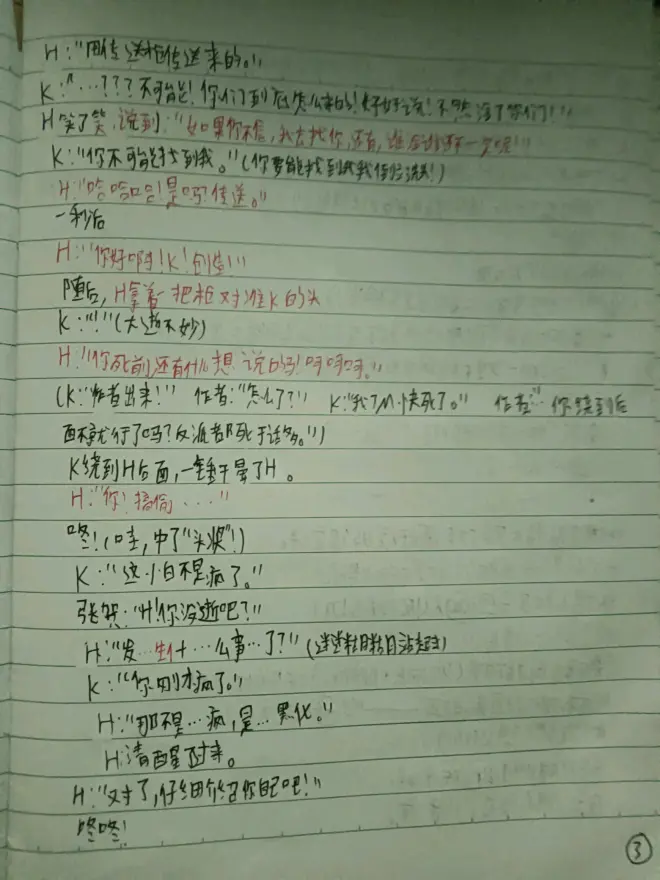 H:"用传送枪传送来的。"
K:"…???不可能!你们到底怎么来的!好好说!不然渣了你们!"
H笑了笑,说到:"如果你不信,我去找你,还有,谁渣谁还不一定呢!"
K:"你不可能找到我。"(你要能找到我我倒洗头!)
H:"哈哈哈!是吗?传送。"
一秒后
H:"你好啊!K!创造!"
随后,H拿着一把枪对准K的头
K:"!"(大逝不妙)
H:"你死前,还有什么想说的吗!呵呵呵。"
(K:"作者出来!" 作者:"怎么了?" K:"我TM快死了。" 作者"…你绕到后
面不就行了吗?反派都死于话多。")
K绕到H后面,一锤干晕了H。
H:"你!搞偷...."
咚!(哇,中了"头奖"!)
K:"这小白不是疯了。"
张贺:"H!你没逝吧?"
H:"发…生什…么事…了?"(迷迷糊糊站起)
K:"你刚才疯了。"
H:"那不是…疯,是…黑化。"
H清醒过来。
H:"对了,仔细介绍你自己吧!"
咚咚!
③